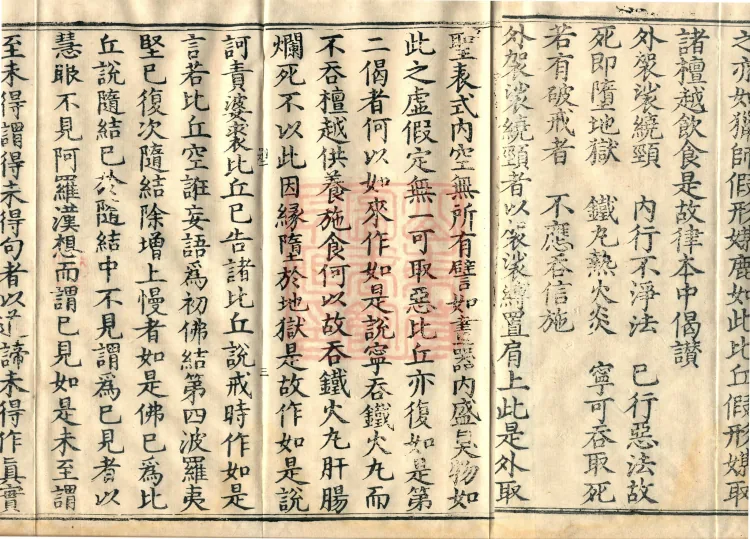 之亦如獵師假形媒鹿如此比丘假形媒取
諸檀越飲食是故律本中偈讚
外袈裟繞頸　內行不淨法　已行惡法故
死即墮地獄　鐵丸熱火炎　寧可吞取死
若有破戒者　不應吞信施
外袈裟繞頸者以袈裟纏置肩上此是外取
聖表式內空無所有譬如畫器內盛臭物如
此之虛假定無一可取惡比丘亦復如是第
二偈者何以如來作如是說寧吞鐵火丸而
不吞檀越供養施食何以故吞鐵火丸肝腸
爛死不以此因緣墮於地獄是故作如是說
訶責婆裘比丘已告諸比丘說戒時作如是
三
言若比丘空誑妄語為初佛結第四波羅夷
堅已復次隨結除增上慢者如是佛已為比
丘說隨結已於隨結中不見謂為已見者以
慧眼不見阿羅漢想而謂已見如是未至謂
至未得謂得未得句者以道諦未得作真實